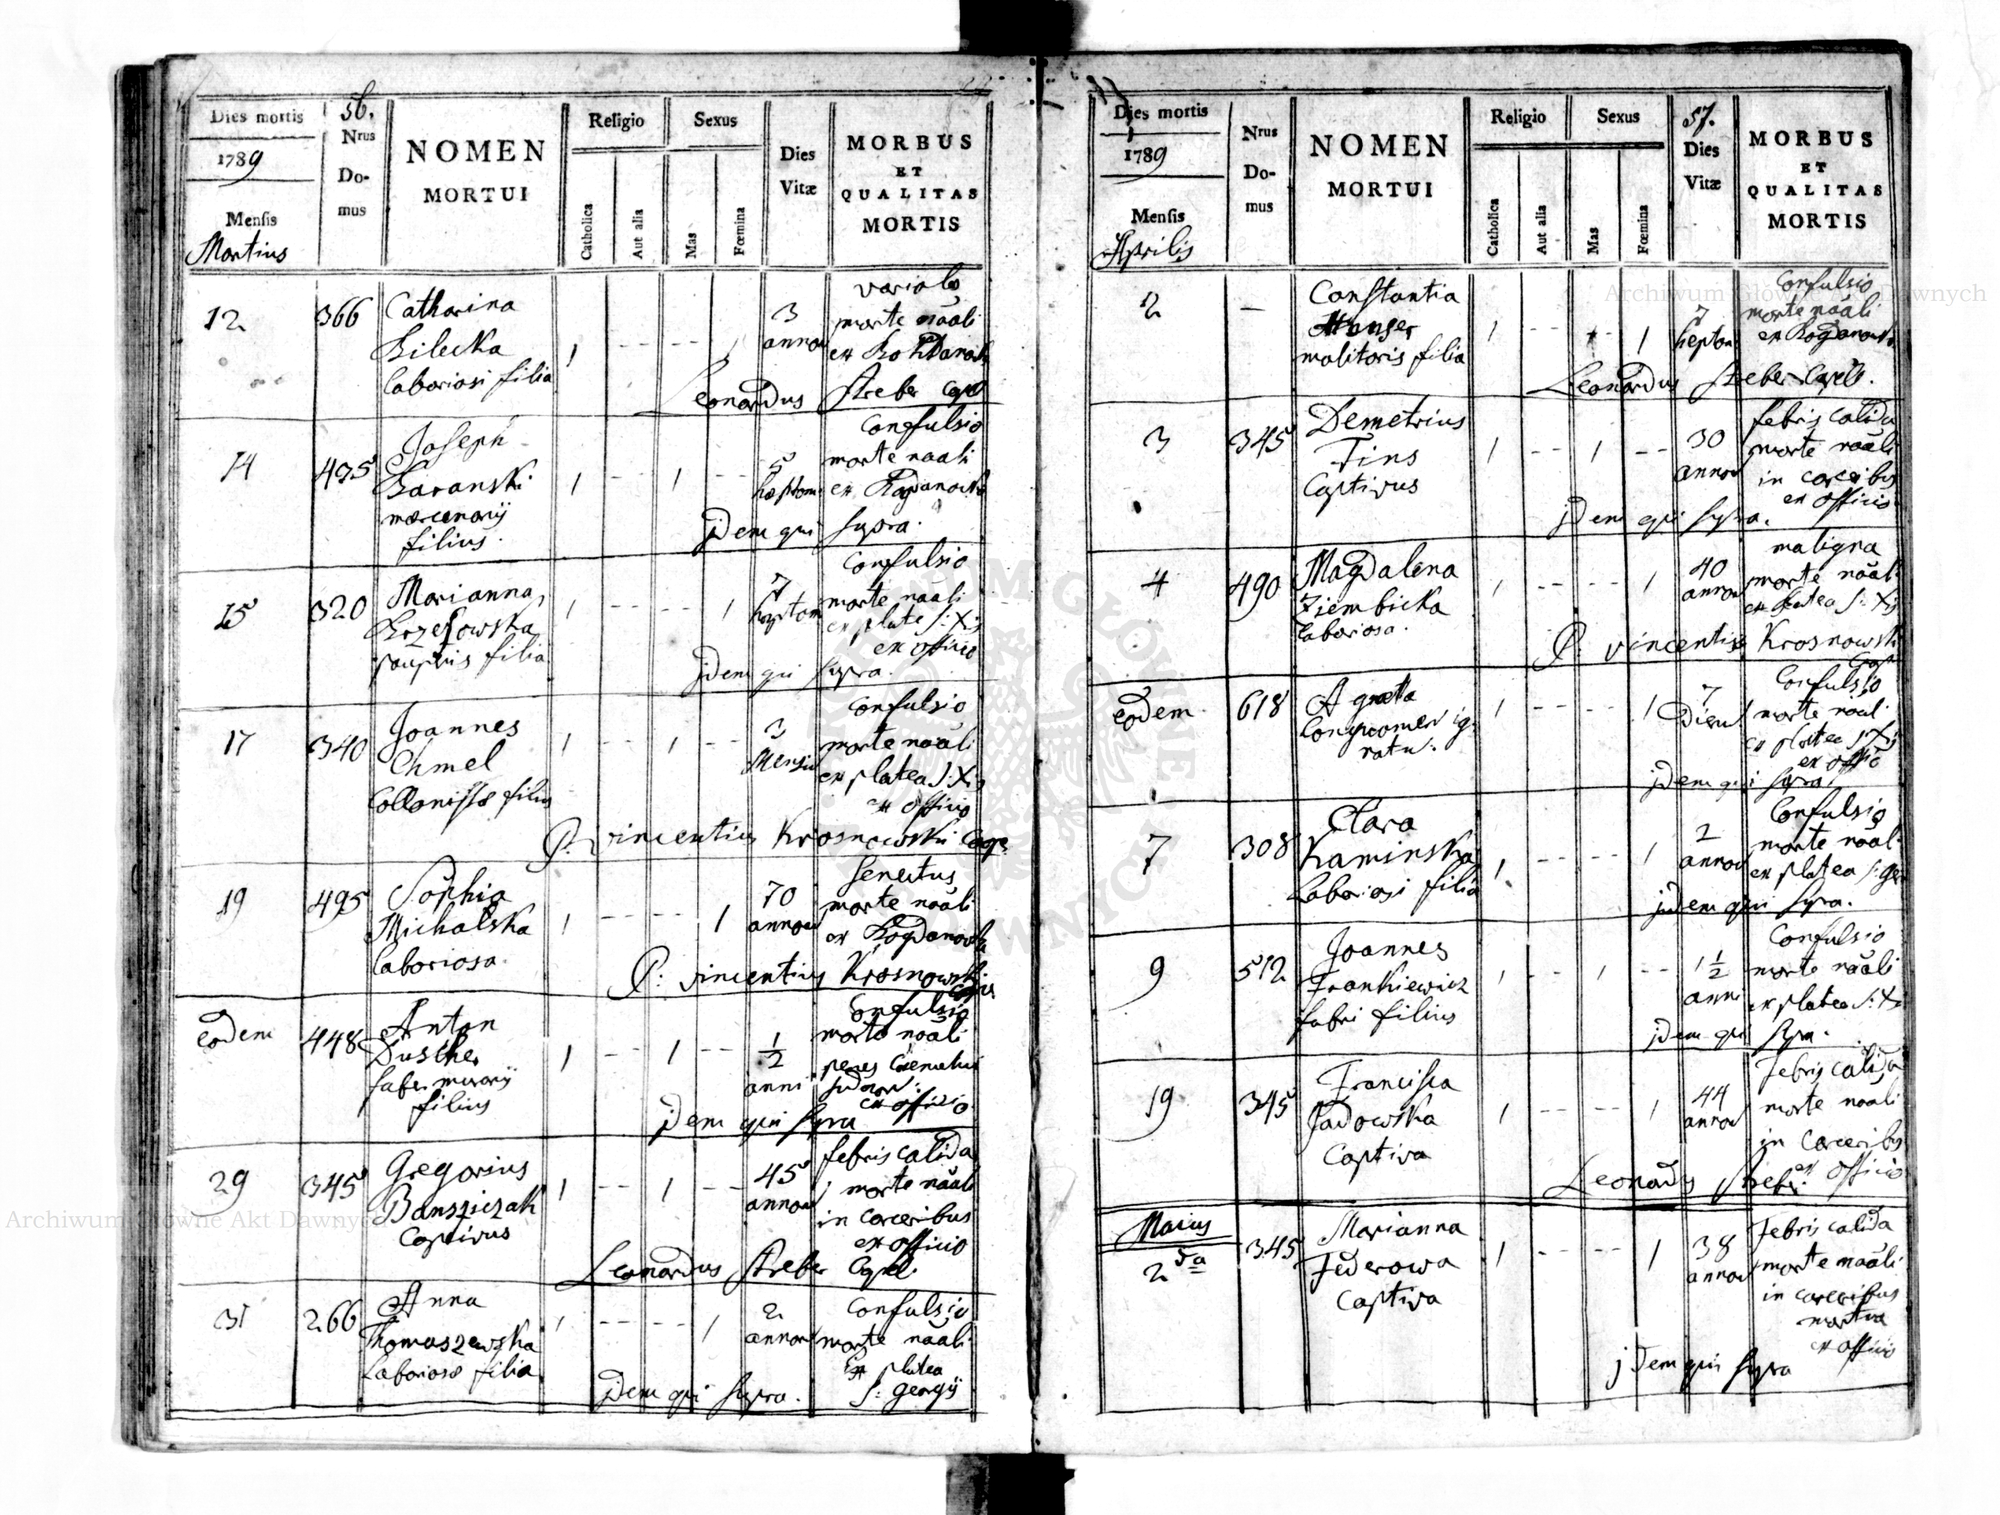 Dies mortis
1789
Mensis
Martius
56.
Nrus
Do-
mus
NOMEN
MORTUI
Religio
Catholica
Aut alia
Sexus
Mas
Fœmina
Dies
Vitæ
MORBUS
ET
QUALITAS
MORTIS
12
366
Catharina
Bilecka
laboriosi filia
1
- - - -
1
3
annor
variola
morte nāāli
ex Bohdanowk
Leonardus Streber Capel
14
495
Joseph
Baranski
mercenarij
filius.
1
- -
1
- -
5
heptom
Confulsio
morte naali
ex Bogdanowka
jdem qui supra.
15
320
Marianna
Brzesowska
pauperis filia
1
- - - -
1
7
heptom
Confulsio
morte naali
ex plate S: Xis
ex officio
jdem qui supra.
17
340
Joannes
Chmel
Collonistæ filius
1
- -
1
- -
3
Mensiu
Confulsio
morte nāāli
ex platea S: Xis
ex officio
P: vincentius Krosnowski Cape
19
495
Sophia
Michalska
laboriosa.
1
- - - -
1
70
annor
Senectus
morte nāāli
ex Bogdanowka
P: vincentius Krosnowski
eodem
448
Anton
Duscher
faber murarij
filius
1
- -
1
- -
1/2
anni
Confulsio
morte nāāli
penes
ex officio
jdem qui supra
29
345
Gregorius
Banszczak
Captivus
1
- -
1
- -
45
annor
febris calida
morte nāāli
in carceribus
ex officio
Leonardus Streber Capel
31
266
Anna
Thomaszewska
Laboriosæ filia
1
- - - -
1
2
annor
Confulsio
morte nāāli
Ex platea
S: georgij
jdem qui supra.
Dies mortis
1789
Mensis
Aprilis
Nrus
Do-
mus
NOMEN
MORTUI
Religio
Catholica
Aut alia
Sexus
Mas
Fœmina
57.
Dies
Vitæ
MORBUS
ET
QUALITAS
MORTIS
2
-
Constantia
molitoris filia
1
1
7
heptom
Confulsio
morte nāāli
ex Bogdanowk
Leonardus Streber Capell.
3
345
Demetrius
Fins
Captivus
1
- -
1
- -
30
annor
febris calida
morte nāāli
in carceribus
ex officio
jdem qui supra.
4
490
Magdalena
Ziembicka
laboriosa.
1
- - - -
1
40
annor
maligna
morte nāāli
ex platea S: Xis
P: vincentius Krosnowski
eodem
618
Agnetta
Congnomen ig-
ratu.
1
- - - -
1
7
Dieru
Confulsio
morte nāāli
ex platea S: Xis
ex offio
jdem qui supra
7
308
Clara
Kaminska
Laboriosi filia
1
- - - -
1
2
annor
Confulsio
morte nāāli
ex platea S: geor
jdem qui supra.
9
512
Joannes
Frankiewicz
fabri filius
1
- -
1
- -
1 1/2
anni
Confulsio
morte nāāli
ex platea S: X
jdem qui supra.
19
345
Francisca
Sadowska
Captiva
1
- - - -
1
44
annor
Febris calida
morte naali
in carceribus
ex officio
Leonardus Streber
Maius
2da
345
Marianna
Federowa
Captiva
1
- - - -
1
38
annor
Febris calida
morte naali
in carceribus
mortua
ex officio
jdem qui supra
Archiwum Główne Akt Dawnych
Archiwum Główne Akt Dawnych
ARCHIWUM GŁÓWNE AKT DAWNYCH